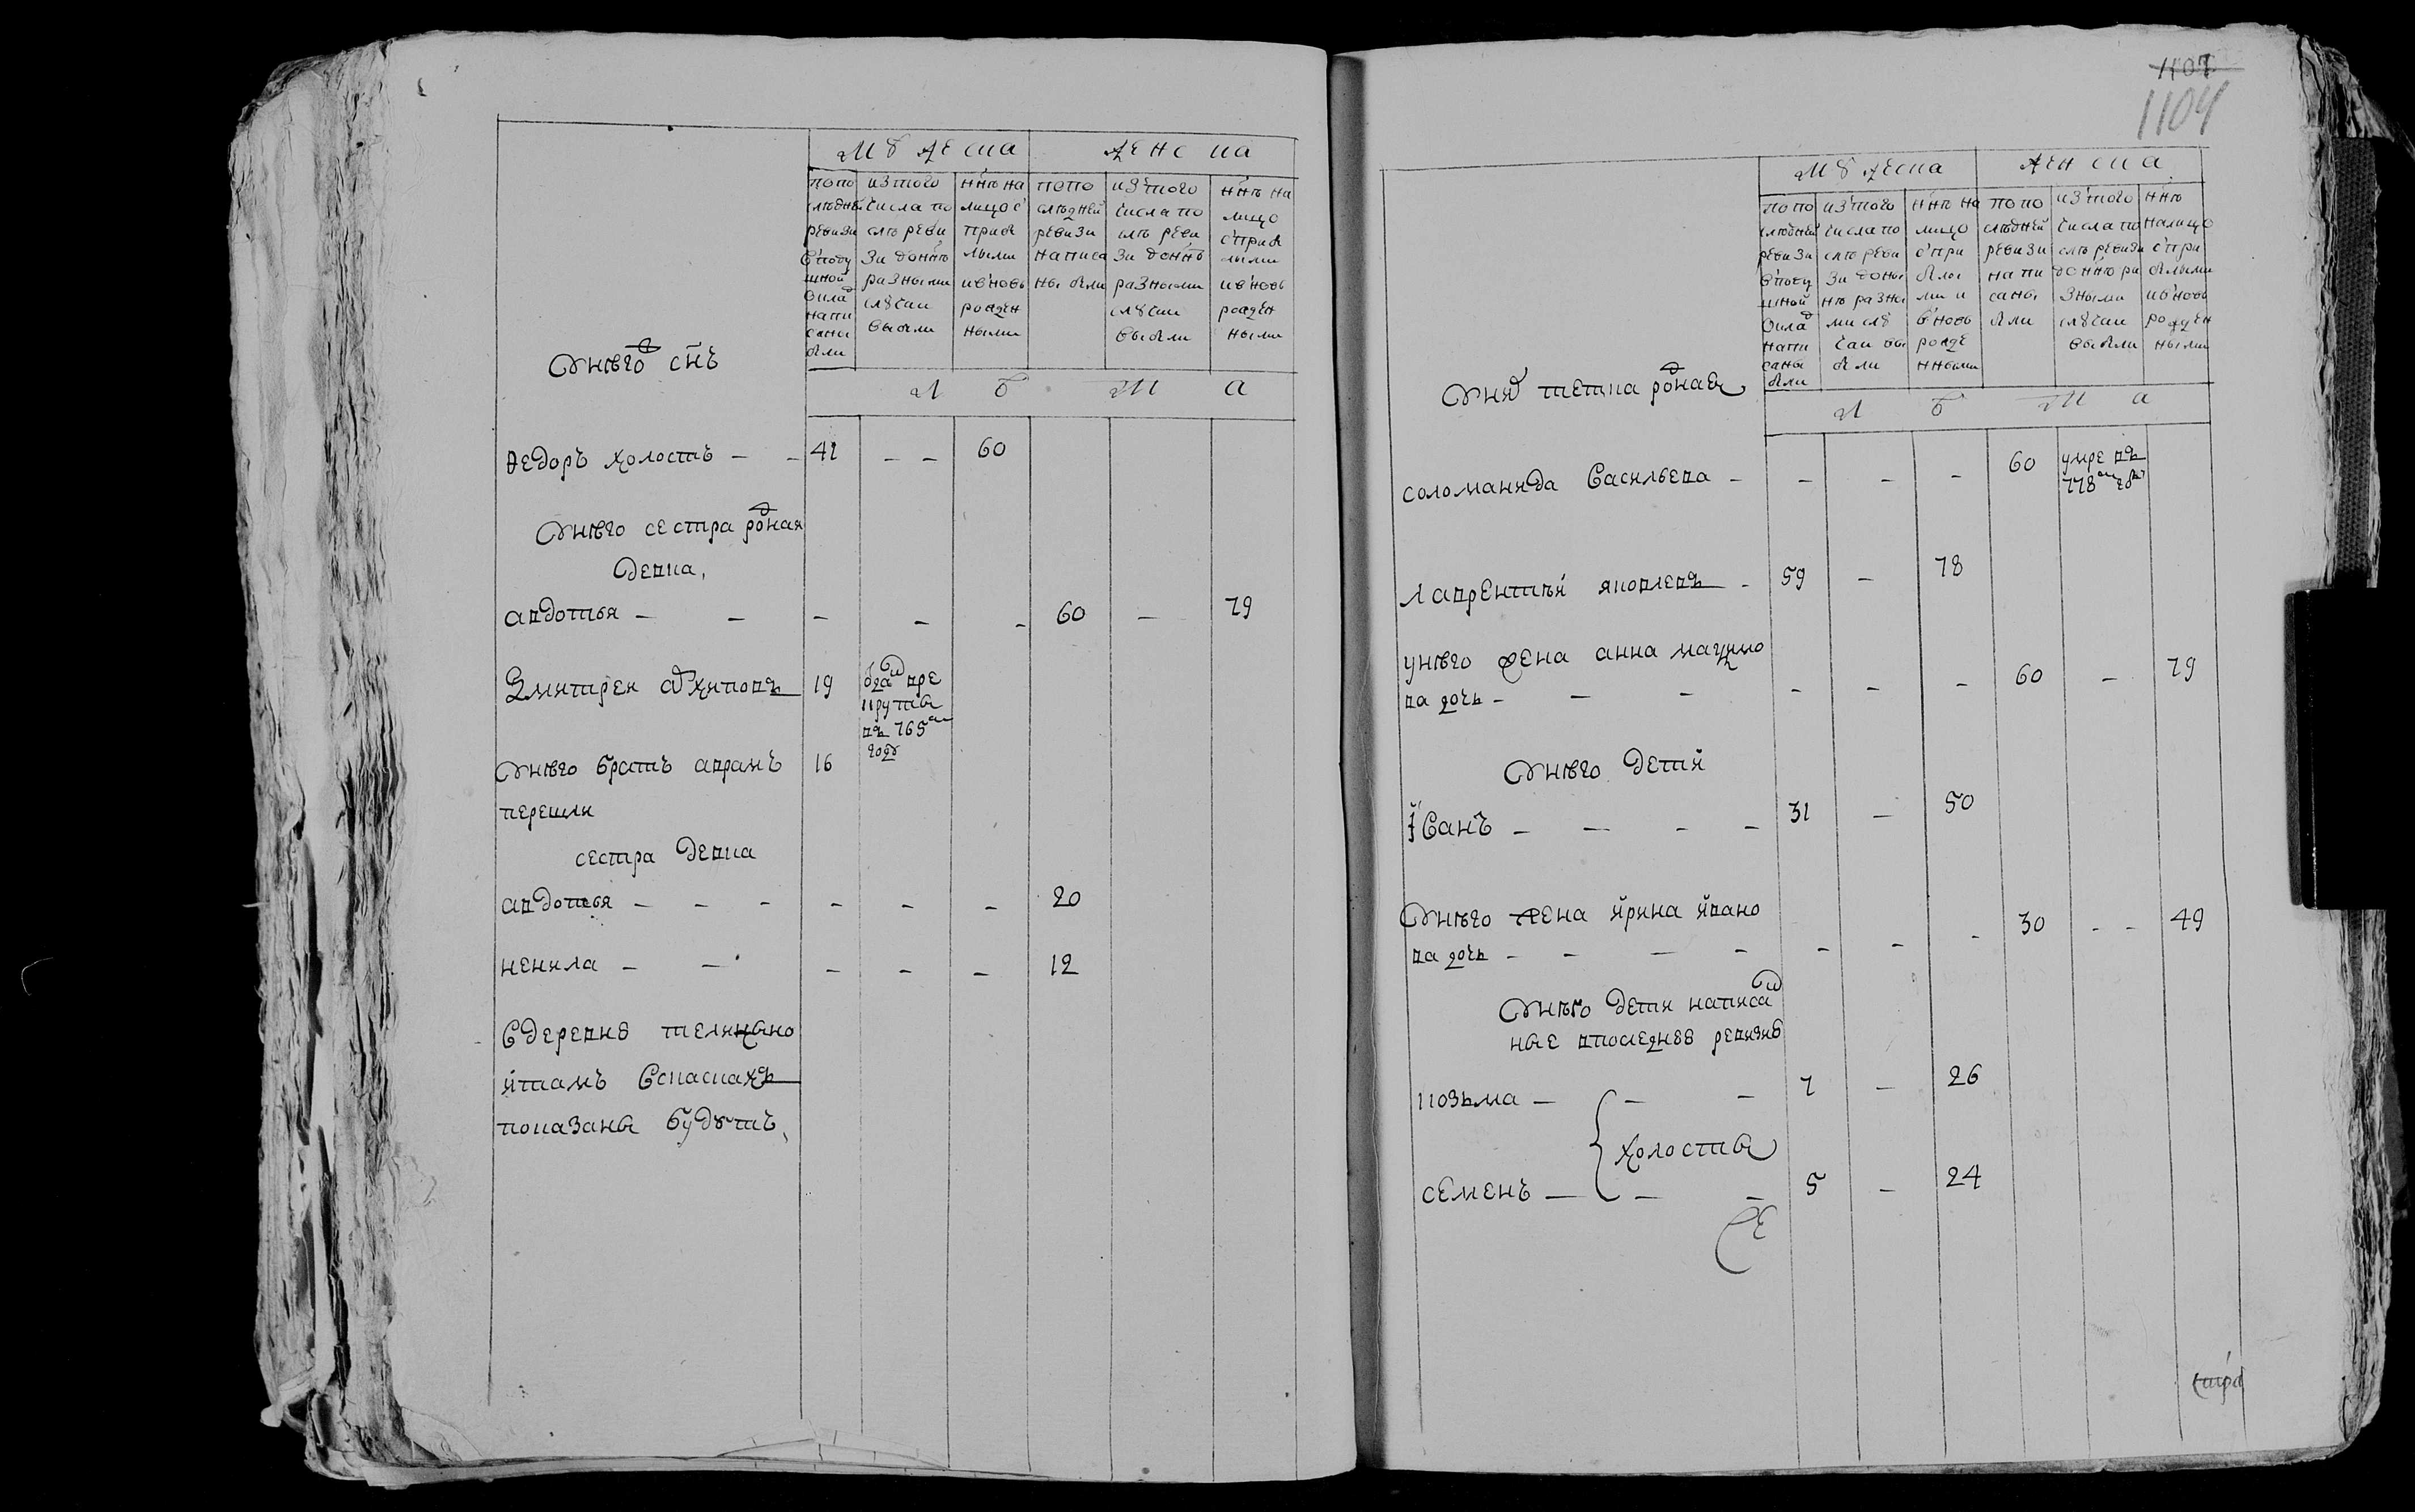 мȣжеска женска
попо
следней
ревизи
вподу
шной
оклад
напи
саны
были
изтого
числа по
сле реви
зи доннѣ
разными
слȣчаи
выбыли
ннѣ на
лицо с
прибы
лыми
ивновь
рожден
ными
попо
следней
ревизи
написа
ны были
изтого
числа по
сле реви
зи доннѣ
разными
слȣчаи
выбыли
ннѣ на
лицо
сприбы
лыми
ивновь
рожден
ными
Л ѣ т а
ȣнѣго снъ
ѳедоръ холостъ — — 41 — — 60
ȣнѣго сестра родная
девка,
авдотья — — — — — 60 — 79
Дмитреи архиповъ 19 отдан вре
круты
въ 765м
годȣ
ȣнѣго братъ аврамъ 16
перешли
сестра девка
авдотья — — — — — — 20
ненила — — — — — 12
вдеревнȣ телицыно
итамъ всказкахъ
показаны будȣтъ,
1107
1104
мȣжеска женска
попо
следней
ревизи
вподу
шной
оклад
напи
саны
были
изтого
числа по
сле реви
зи доны
нѣ разны
ми слȣ
чаи вы
были
ннѣ на
лицо
спри
былы
ми и
вновь
рожде
нными
попо
следней
ревизи
напи
саны
были
изтого
числа по
сле ревизи
доннѣ ра
зными
слȣчаи
выбыли
ннѣ
налицо
спри
былыми
ивновь
рожден
ными
Л ѣ т а
ȣних тетка родная
соломанида васильева — — — — 60 умре въ
778м годȣ
лаврентѣй яковлевъ — 59 — 78
унѣго жена анна макимо
ва дочь — — — — — — 60 — 79
ȣнѣго дети
иванъ — — — — 31 — 50
ȣнѣго жена ирина ивано
ва дочь — — — — — — — 30 — — 49
ȣнѣго дети написан
ные впоследнюю ревизию
козьма — — — 7 — 26
холосты
семенъ — — — 5 — 24